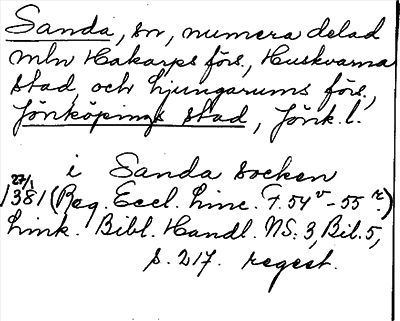 Sanda, sn, numera delad
mln Hakarps förs., Huskvarna
stad, och Ljungarums förs.,
Jönköpings stad, Jönk. l.
i Sanda socken
27/1
1381 (Reg. Eccl. Linc. F. 54 v - 55 r.)
Link. Bibl. Handl. NS: 3, Bil. 5,
s. 217. regest.